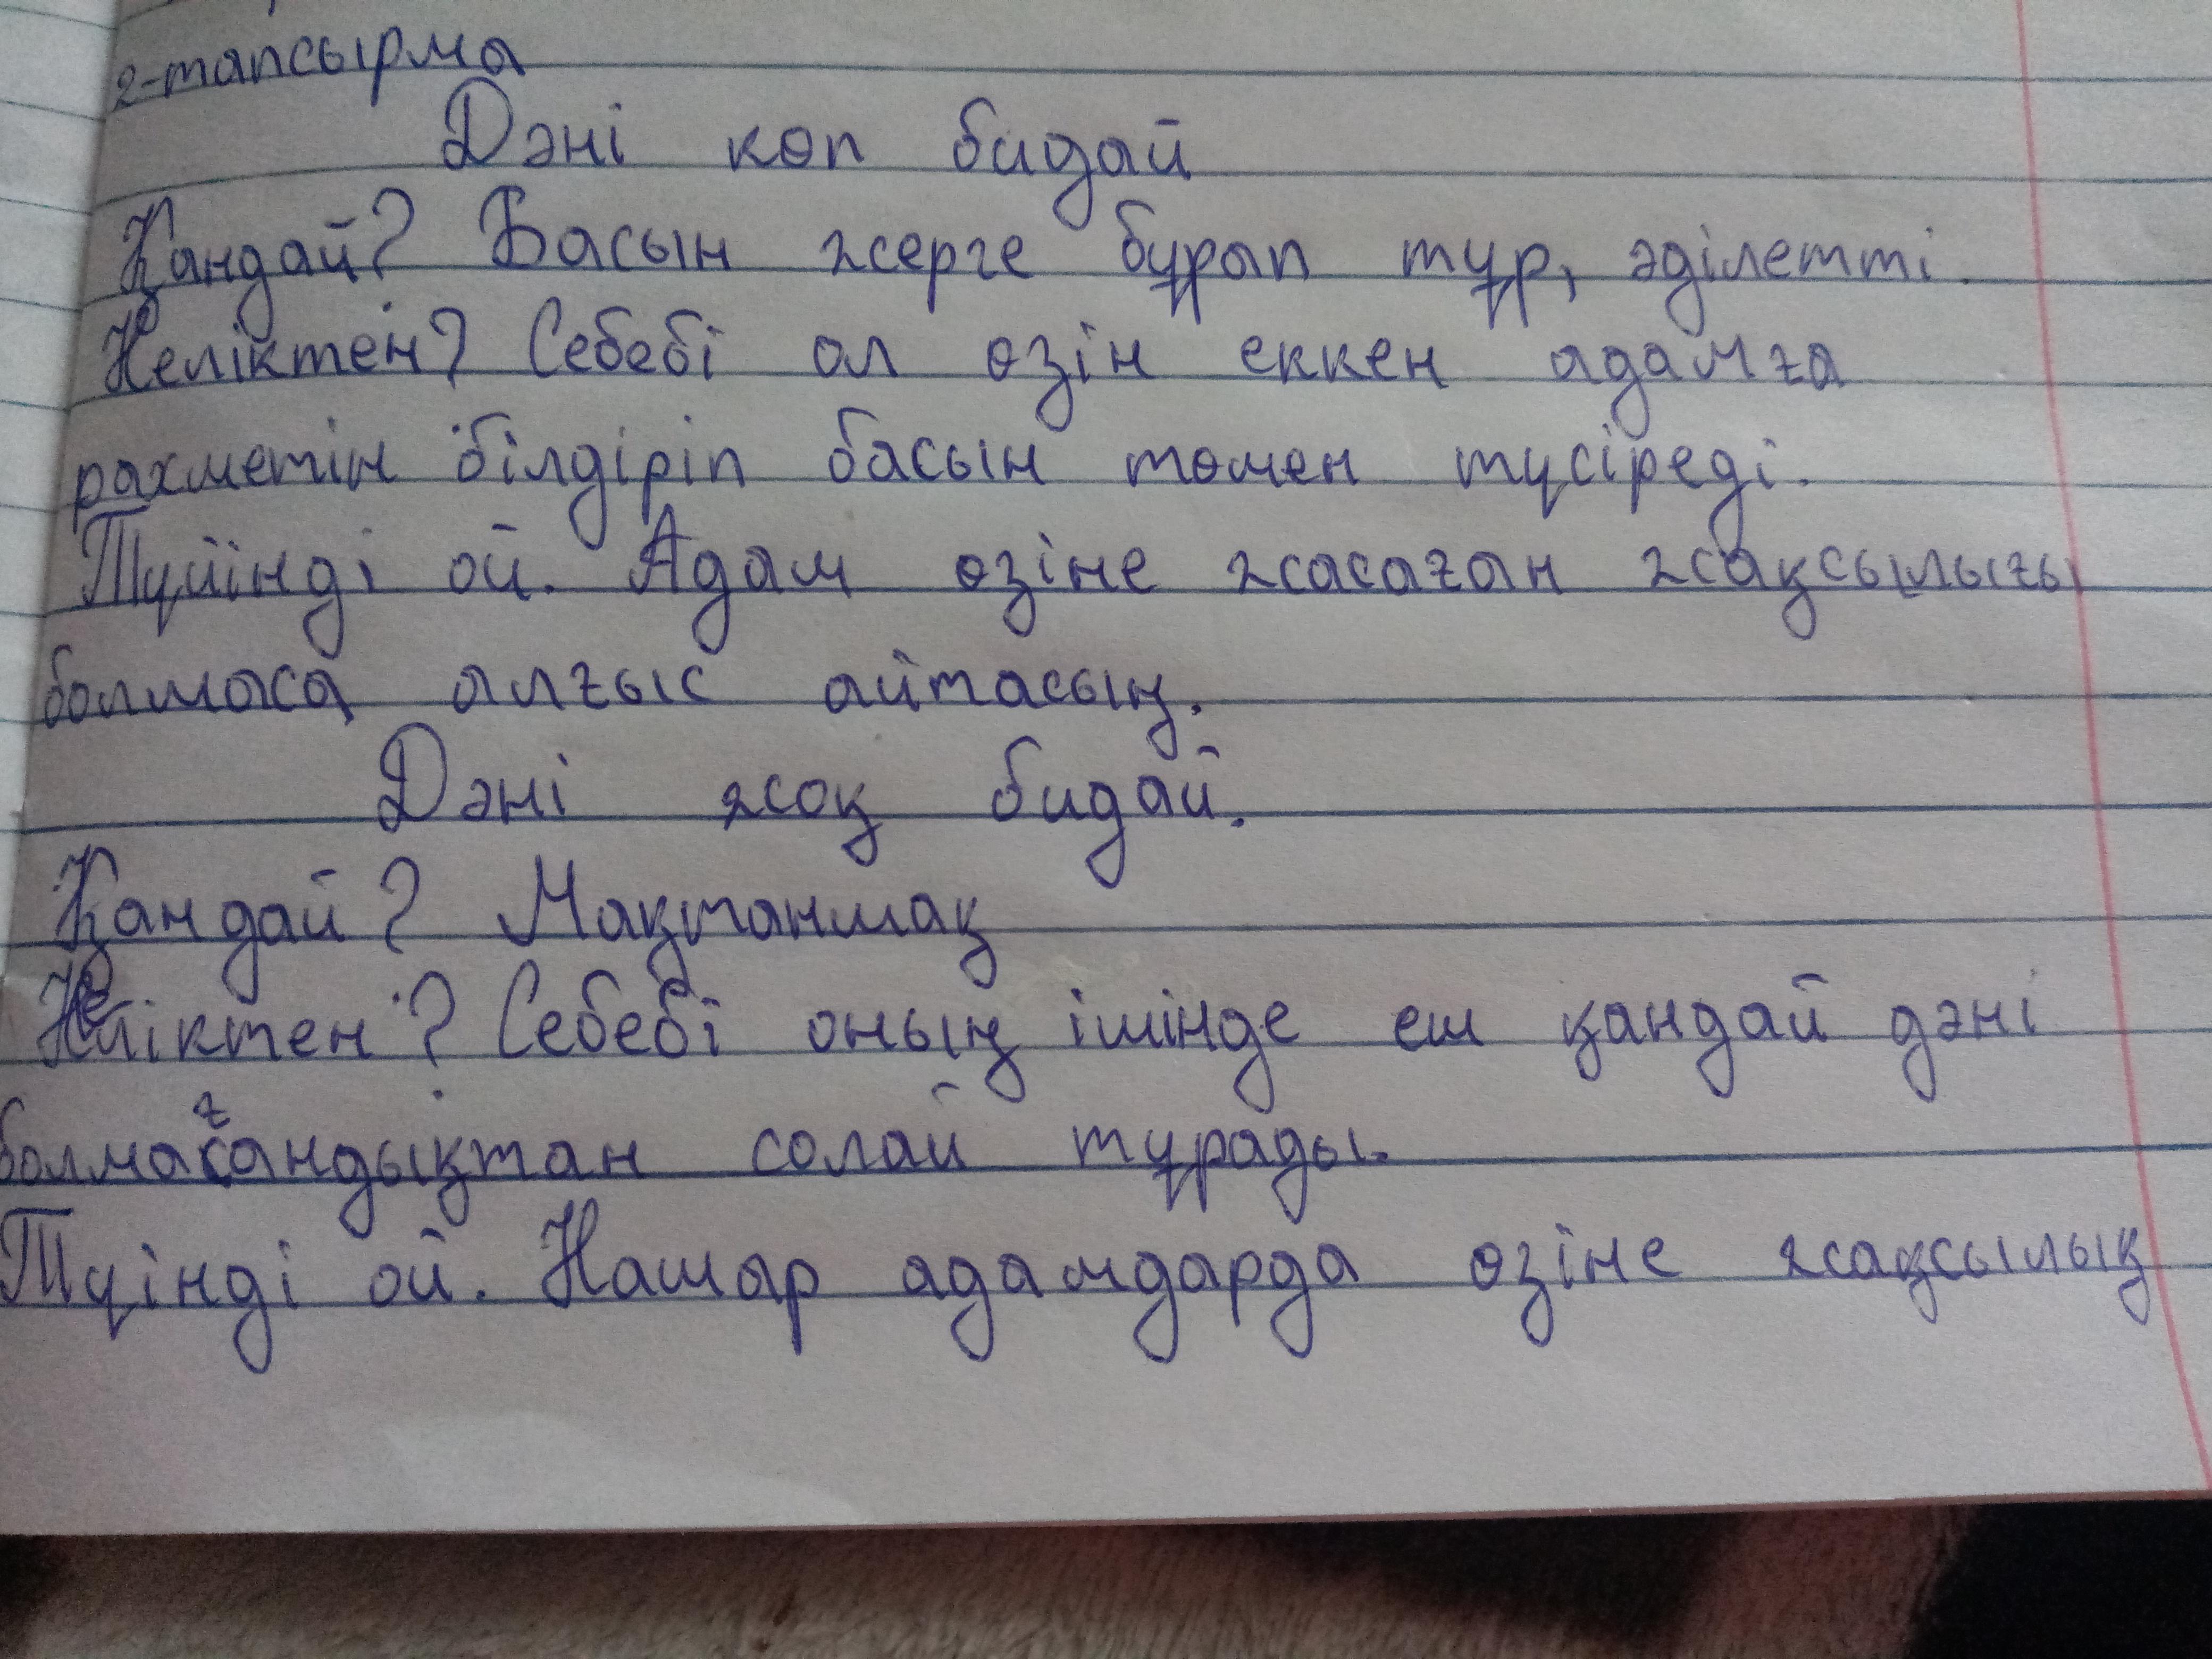 2-тапсырма
Дәні көп бидай
Қандай? Басын жерге бұрып тұр, әділетті.
Неліктен? Себебі ол өзін еккен адамға
рахметін білдіріп басын төмен түсіреді.
Түйінді ой. Адам өзіне жасаған жақсылығы
болмаса алғыс айтасың.
Дәні жоқ бидай.
Қандай? Мақтаншақ
Неліктен? Себебі оның ішінде еш қандай дәні
болмағандықтан солай тұрады.
Түінді ой. Нашар адамдарда өзіне жақсылық